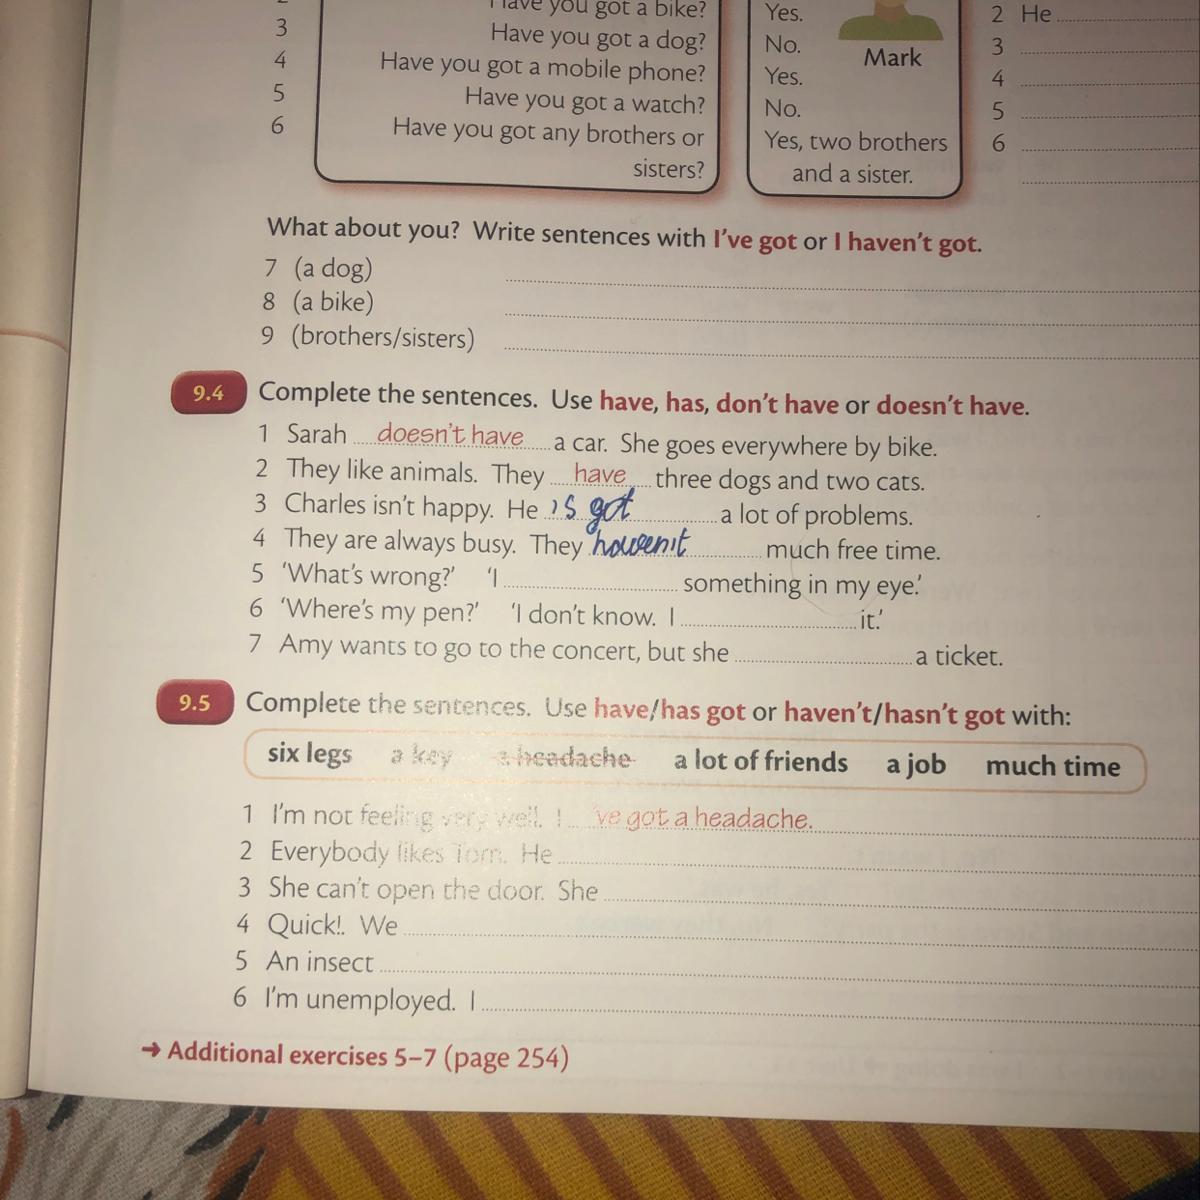 Have you got a bike? Yes. 2 He
3 Have you got a dog? No. Mark 3
4 Have you got a mobile phone? Yes. 4
5 Have you got a watch? No. 5
6 Have you got any brothers or Yes, two brothers 6
sisters? and a sister.
What about you? Write sentences with I've got or I haven't got.
7 (a dog)
8 (a bike)
9 (brothers/sisters)
9.4 Complete the sentences. Use have, has, don't have or doesn't have.
1 Sarah doesn't have a car. She goes everywhere by bike.
2 They like animals. They have three dogs and two cats.
3 Charles isn't happy. He 's got a lot of problems.
4 They are always busy. They haven't much free time.
5 'What's wrong?' 'I something in my eye.'
6 'Where's my pen?' 'I don't know. I it.'
7 Amy wants to go to the concert, but she a ticket.
9.5 Complete the sentences. Use have/has got or haven't/hasn't got with:
six legs a key a headache a lot of friends a job much time
1 I'm not feeling very well. I 've got a headache.
2 Everybody likes Tom. He
3 She can't open the door. She
4 Quick!. We
5 An insect
6 I'm unemployed. I
→ Additional exercises 5–7 (page 254)